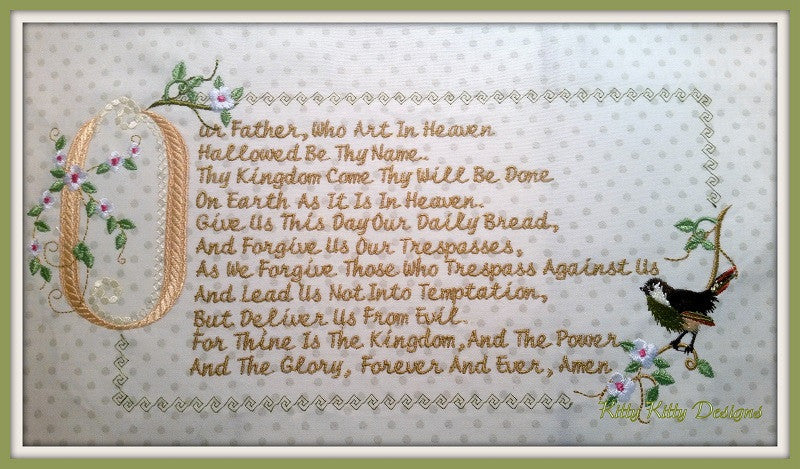 Our Father, Who Art In Heaven
Hallowed Be Thy Name.
Thy Kingdom Come Thy Will Be Done
On Earth As It Is In Heaven.
Give Us This Day Our Daily Bread,
And Forgive Us Our Trespasses,
As We Forgive Those Who Trespass Against Us
And Lead Us Not Into Temptation,
But Deliver Us From Evil.
For Thine Is The Kingdom, And The Power
And The Glory, Forever And Ever, Amen
Kitty Kitty Designs